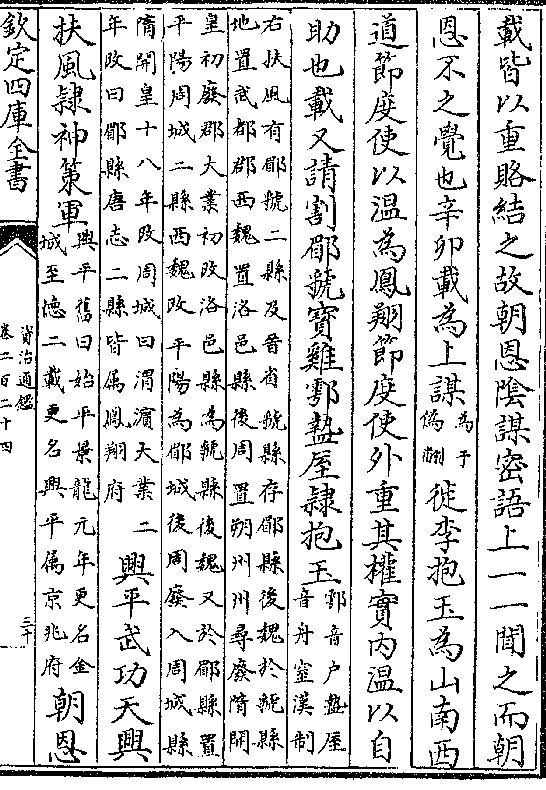 載皆以重賂結之故朝恩陰謀密語上一一聞之而朝
恩不之覺也辛卯載為上謀為于偽翻徙李抱玉為山南西
道節度使以温為鳳翔節度使外重其權實内温以自
助也載又請割郿虢寶雞鄠盩厔隸抱玉鄠音户盩厔音舟窒漢制
右扶風有郿虢二縣及晉省虢縣存郿縣後魏於虢縣
地置武都郡西魏置洛邑縣後周置朔州州尋廢隋開
皇初廢郡大業初改洛邑縣為虢縣後魏又於郿縣置
平陽周城二縣西魏改平陽為郿城後周廢入周城縣
隋開皇十八年改周城曰渭濵大業二
年改曰郿縣唐志二縣皆屬鳳翔府興平武功天興
扶風隸神策軍興平舊曰始平景龍元年更名金城至徳二載更名興平屬京兆府朝恩
欽定四庫全書
資治通鑑
卷二百二十四
三十